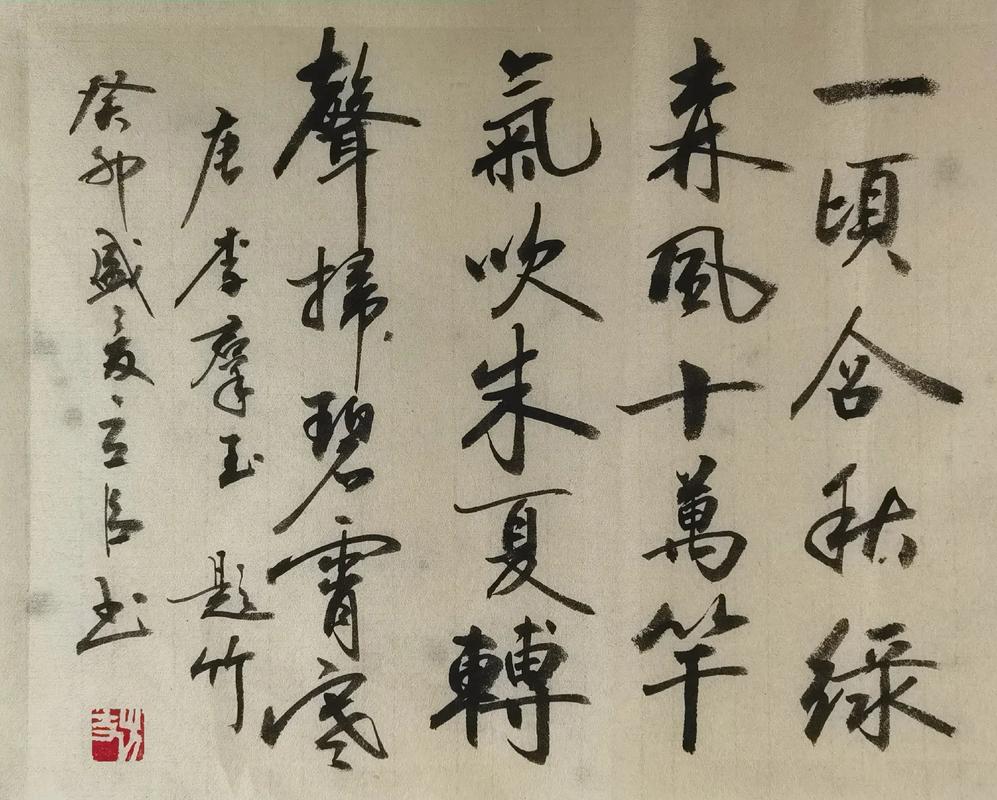 一頃含秋綠
森風十萬竿
氣吹朱夏轉
聲掃碧霄寒
唐李羣玉題竹
癸卯盛夏立臣书